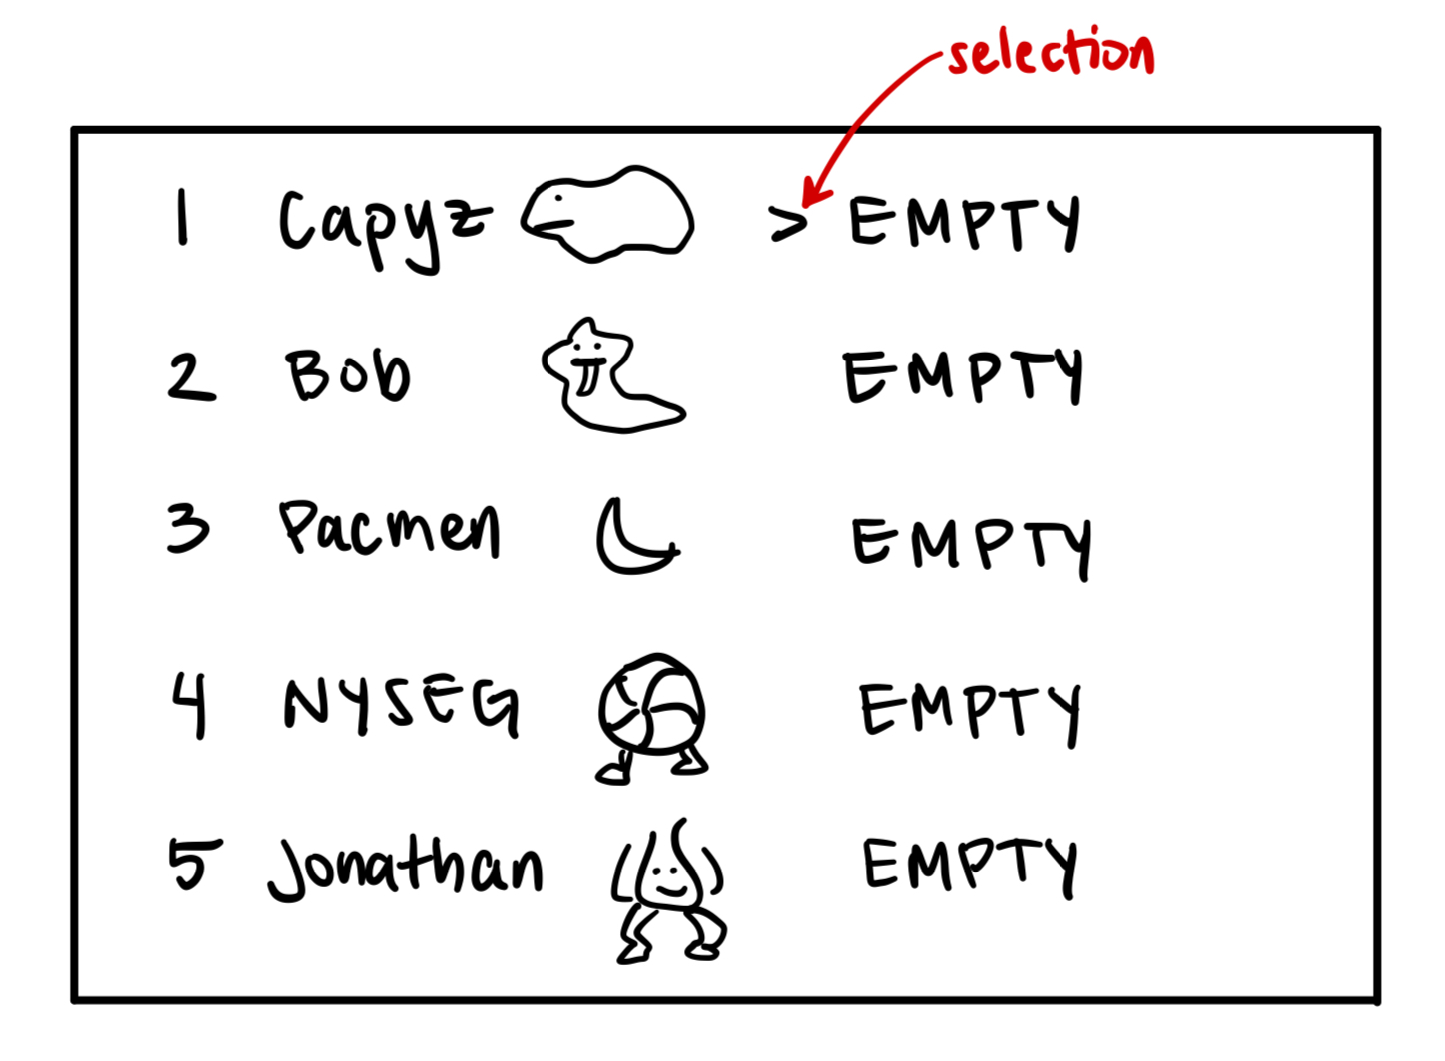 selection
1 Capyz > EMPTY
2 Bob EMPTY
3 Pacmen EMPTY
4 NYSEG EMPTY
5 Jonathan EMPTY